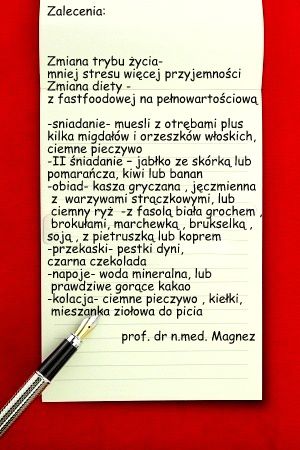 Zalecenia:
Zmiana trybu życia-
mniej stresu więcej przyjemności
Zmiana diety -
z fastfoodowej na pełnowartościową
-sniadanie- muesli z otrębami plus
kilka migdałów i orzeszków włoskich,
ciemne pieczywo
-II śniadanie – jabłko ze skórką lub
pomarańcza, kiwi lub banan
-obiad- kasza gryczana , jęczmienna
z warzywami strączkowymi, lub
ciemny ryż -z fasolą biała grochem ,
brokułami, marchewką , brukselką ,
soją , z pietruszką lub koprem
-przekaski- pestki dyni,
czarna czekolada
-napoje- woda mineralna, lub
prawdziwe gorące kakao
-kolacja- ciemne pieczywo , kiełki,
mieszanka ziołowa do picia
prof. dr n.med. Magnez